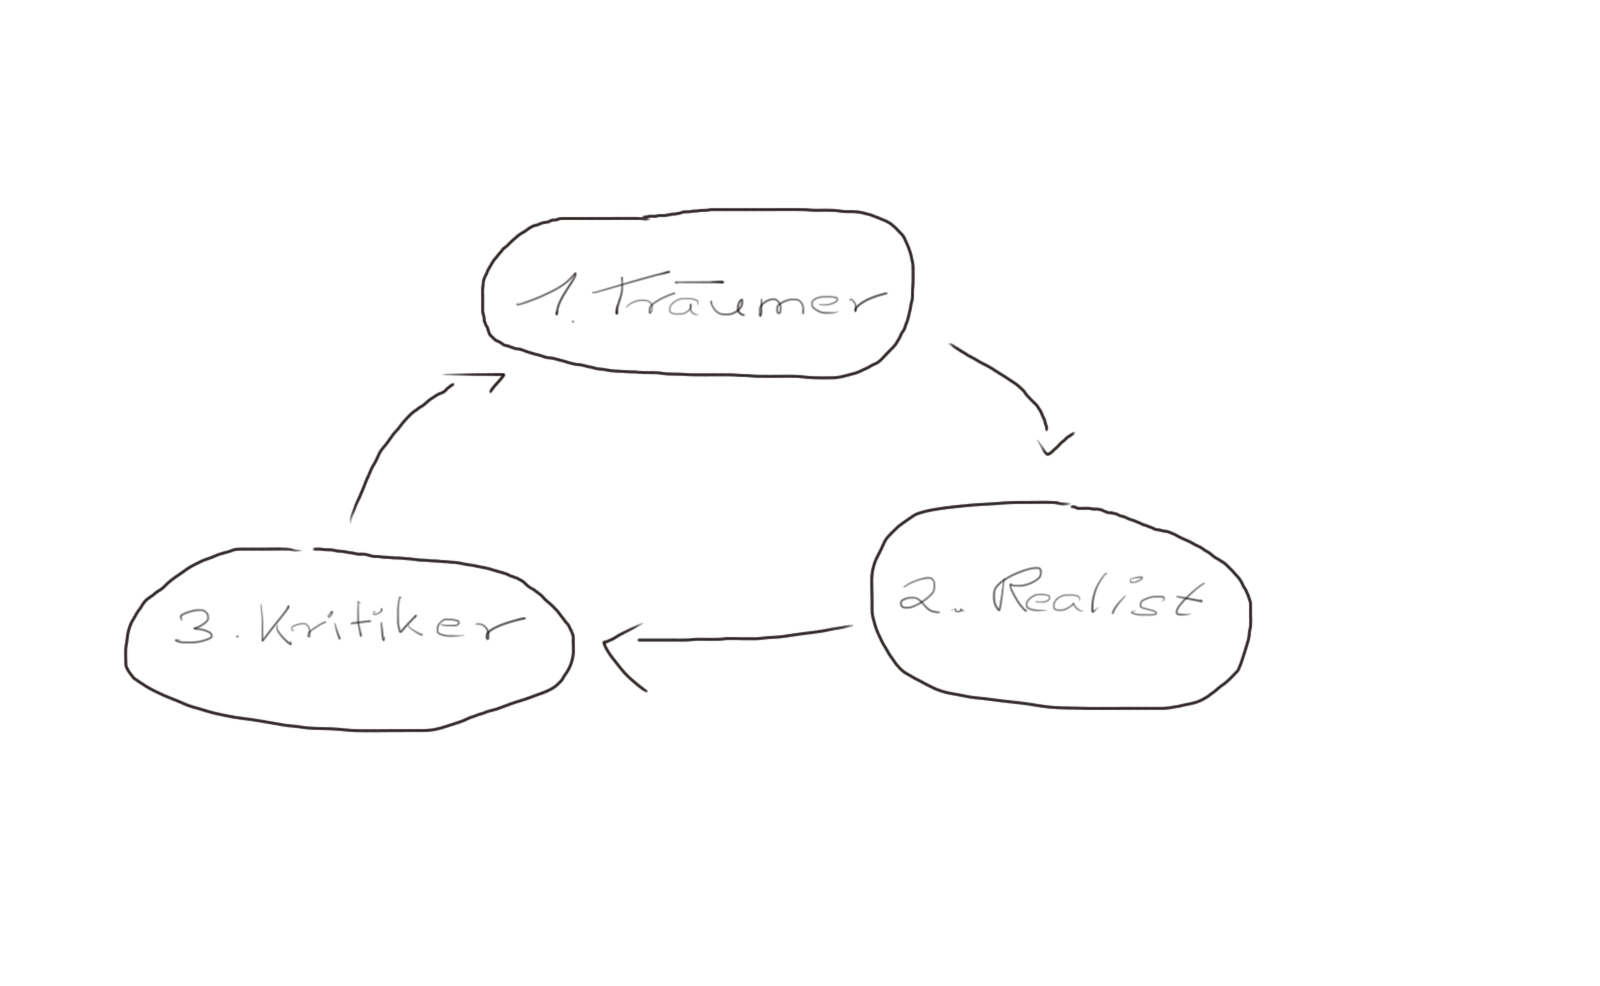 1. Träumer
2. Realist
3. Kritiker